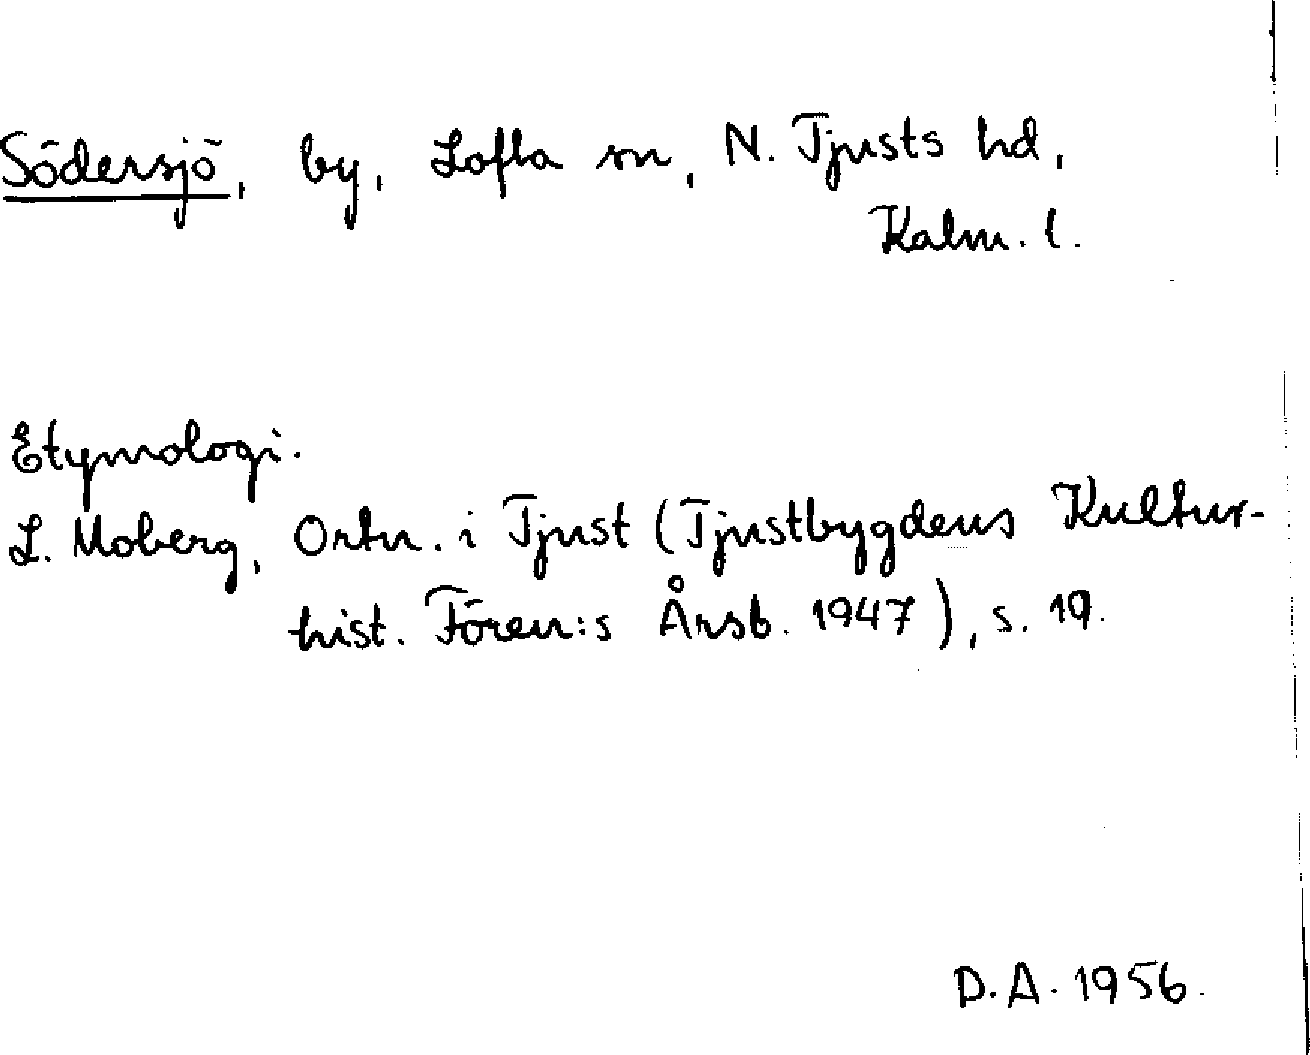 Södersjö, by, Lofta sn, N. Tjusts hd,
Kalm. l.
Etymologi.
L. Moberg, Ortn. i Tjust (Tjustbygdens Kultur-
hist. Fören:s Årsb. 1947), s. 19.
D.A. 1956.